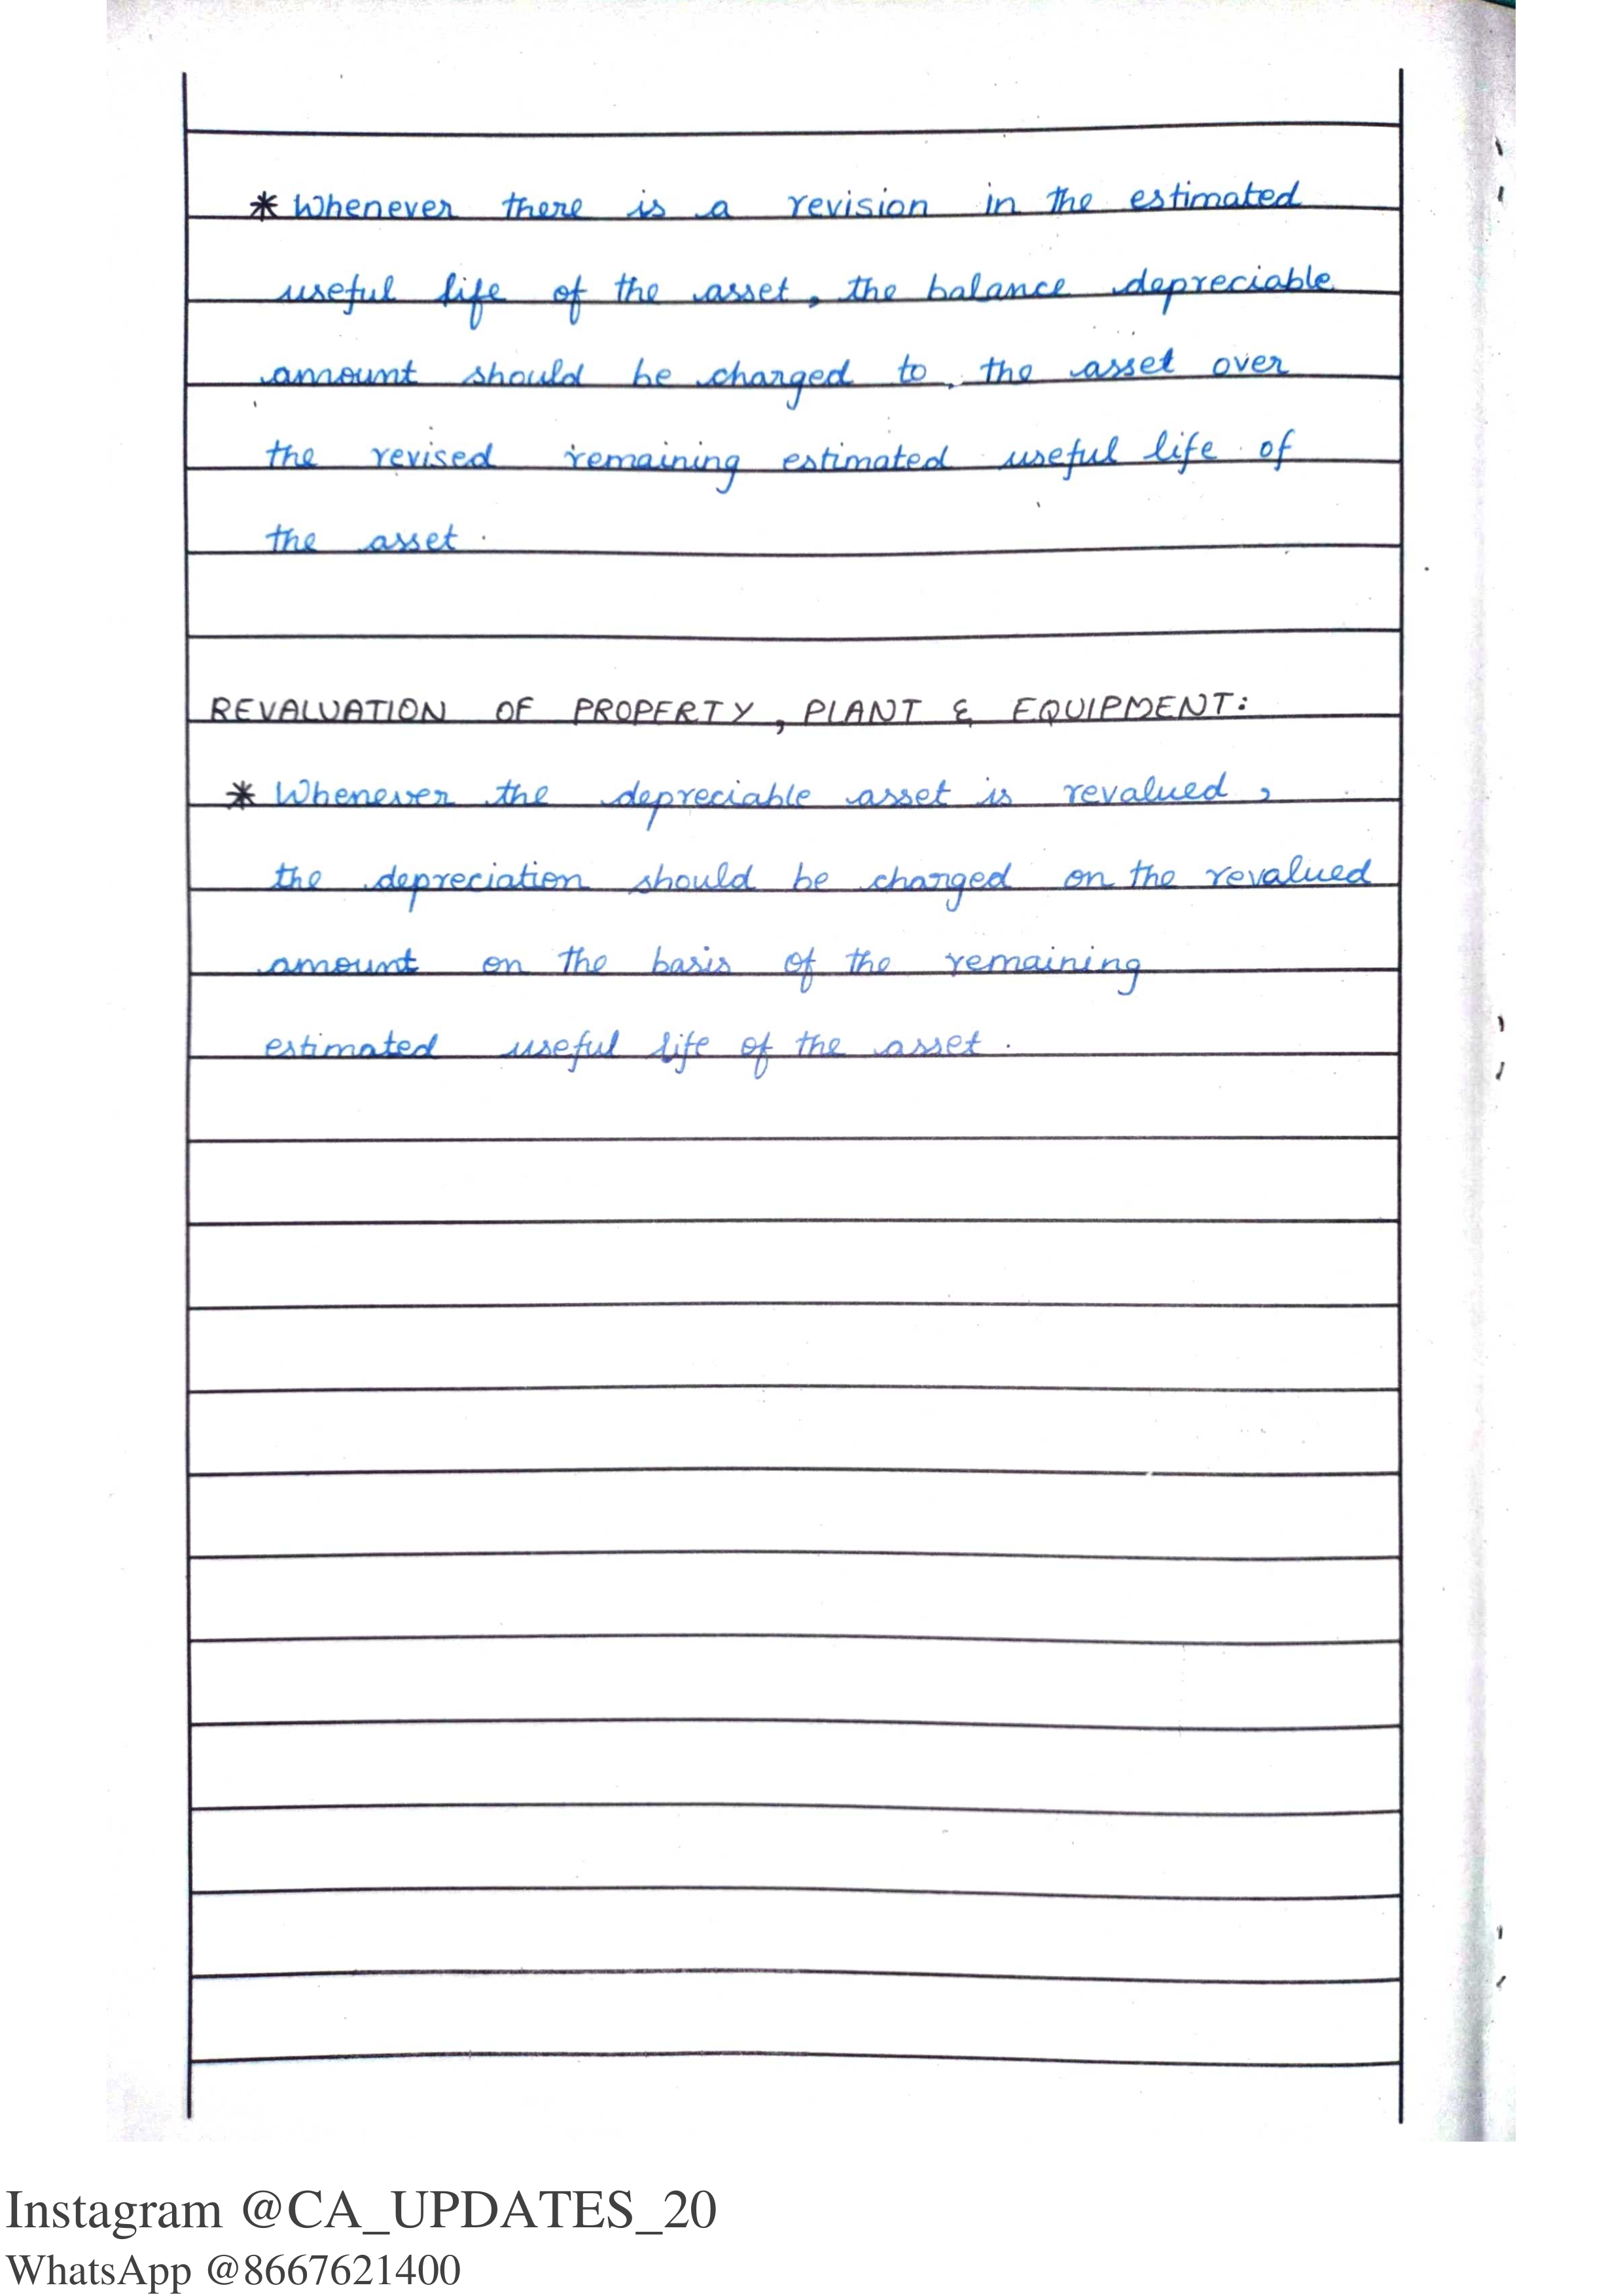 * Whenever there is a revision in the estimated
useful life of the asset, the balance depreciable
amount should be charged to the asset over
the revised remaining estimated useful life of
the asset.
REVALUATION OF PROPERTY, PLANT & EQUIPMENT:
* Whenever the depreciable asset is revalued,
the depreciation should be charged on the revalued
amount on the basis of the remaining
estimated useful life of the asset.
Instagram @CA_UPDATES_20
WhatsApp @8667621400